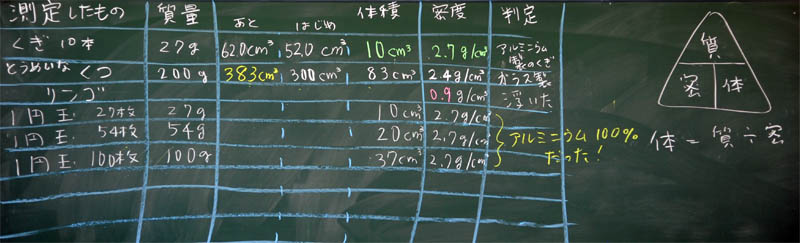 測定したもの 質量 あと はじめ 体積 密度 判定
くぎ10本 27g 62.0cm³ 52.0cm³ 10cm³ 2.7g/cm³ アルミニウム製のくぎ
とうめいなくつ 200g 383cm³ 300cm³ 83cm³ 2.4g/cm³ ガラス製
リンゴ 0.9g/cm³ 浮いた
1円玉 27枚 27g 10cm³ 2.7g/cm³
1円玉 54枚 54g 20cm³ 2.7g/cm³ アルミニウム100%
1円玉 100枚 100g 37cm³ 2.7g/cm³ だった!
質
密 体
体=質÷密